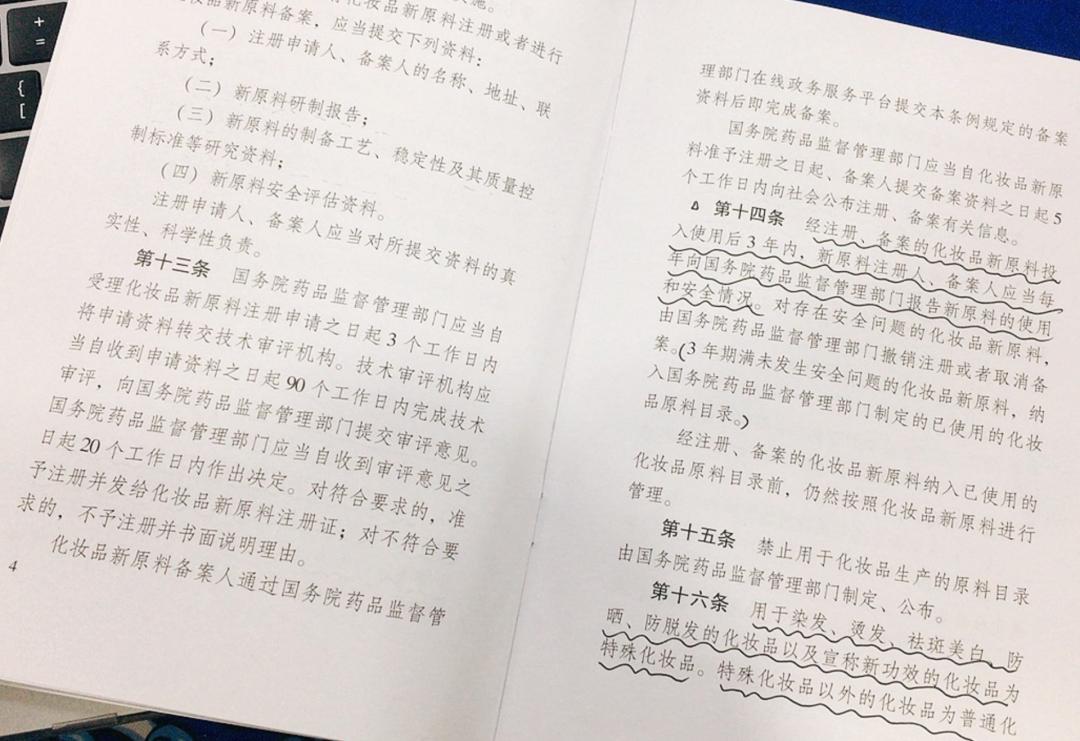 化妆品新原料注册或者进行
妆品新原料备案，应当提交下列资料：
（一）注册申请人、备案人的名称、地址、联
系方式；
（二）新原料研制报告；
（三）新原料的制备工艺、稳定性及其质量控
制标准等研究资料；
（四）新原料安全评估资料。
注册申请人、备案人应当对所提交资料的真
实性、科学性负责。
第十三条 国务院药品监督管理部门应当自
受理化妆品新原料注册申请之日起3个工作日内
将申请资料转交技术审评机构。技术审评机构应
当自收到申请资料之日起90个工作日内完成技术
审评，向国务院药品监督管理部门提交审评意见。
国务院药品监督管理部门应当自收到审评意见之
日起20个工作日内作出决定。对符合要求的，准
予注册并发给化妆品新原料注册证；对不符合要
求的，不予注册并书面说明理由。
化妆品新原料备案人通过国务院药品监督管
4
理部门在线政务服务平台提交本条例规定的备案
资料后即完成备案。
国务院药品监督管理部门应当自化妆品新原
料准予注册之日起、备案人提交备案资料之日起5
个工作日内向社会公布注册、备案有关信息。
第十四条 经注册、备案的化妆品新原料投
入使用后3年内，新原料注册人、备案人应当每
年向国务院药品监督管理部门报告新原料的使用
和安全情况。对存在安全问题的化妆品新原料，
由国务院药品监督管理部门撤销注册或者取消备
案。(3年期满未发生安全问题的化妆品新原料，纳
入国务院药品监督管理部门制定的已使用的化妆
品原料目录。)
经注册、备案的化妆品新原料纳入已使用的
化妆品原料目录前，仍然按照化妆品新原料进行
管理。
第十五条 禁止用于化妆品生产的原料目录
由国务院药品监督管理部门制定、公布。
第十六条 用于染发、烫发、祛斑美白、防
晒、防脱发的化妆品以及宣称新功效的化妆品为
特殊化妆品。特殊化妆品以外的化妆品为普通化
+
=
{
[